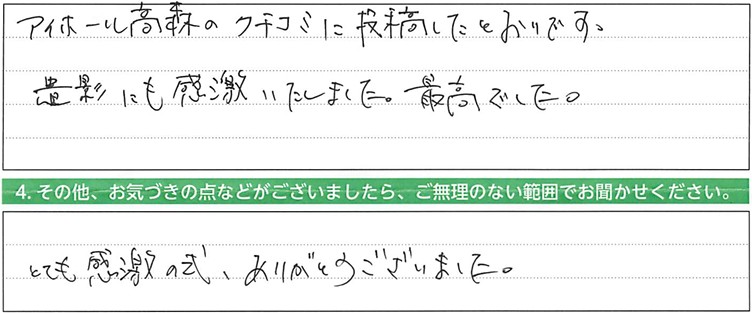 アイホール高森のクチコミに投稿したとおりです。
畳影にも感激いたしました。最高でした。
4. その他、お気づきの点などがございましたら、ご無理のない範囲でお聞かせください。
とても感激の式、ありがとうございました。